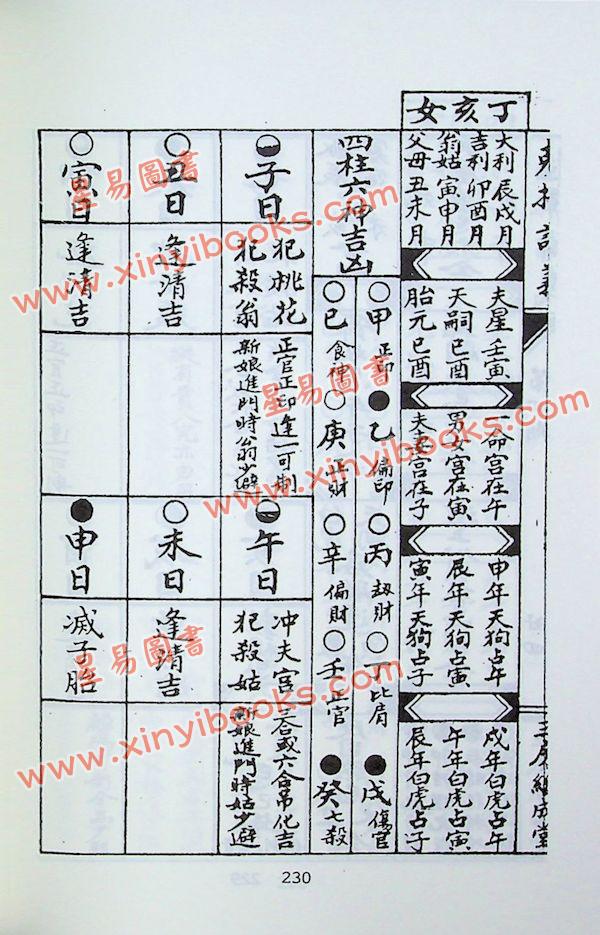 丁亥女
大利辰戌月
吉利卯酉月
翁姑寅申月
父母丑未月
夫星壬寅
天嗣已酉
胎元已酉
命宮在午
男女宮在寅
夫妻宮在子
申年天狗占午
辰年天狗占寅
寅年天狗占子
戌年白虎占午
午年白虎占寅
辰年白虎占子
四柱六神吉凶
甲正印
乙偏印
丙劫財
丁比肩
戊傷官
己食神
庚正財
辛偏財
壬正官
癸七殺
子日
犯桃花
犯殺翁
正官正印逢一可制
新娘進門時翁少避
午日
冲夫宮
犯殺姑
三合或六合吊化吉
新娘進門時姑少避
丑日
逢清吉
未日
逢清吉
寅日
逢清吉
申日
滅子胎
230
星易圖書
www.xinyibooks.com
星易圖書
www.xinyibooks.com
星易圖書
www.xinyibooks.com
星易圖書
www.xinyibooks.com